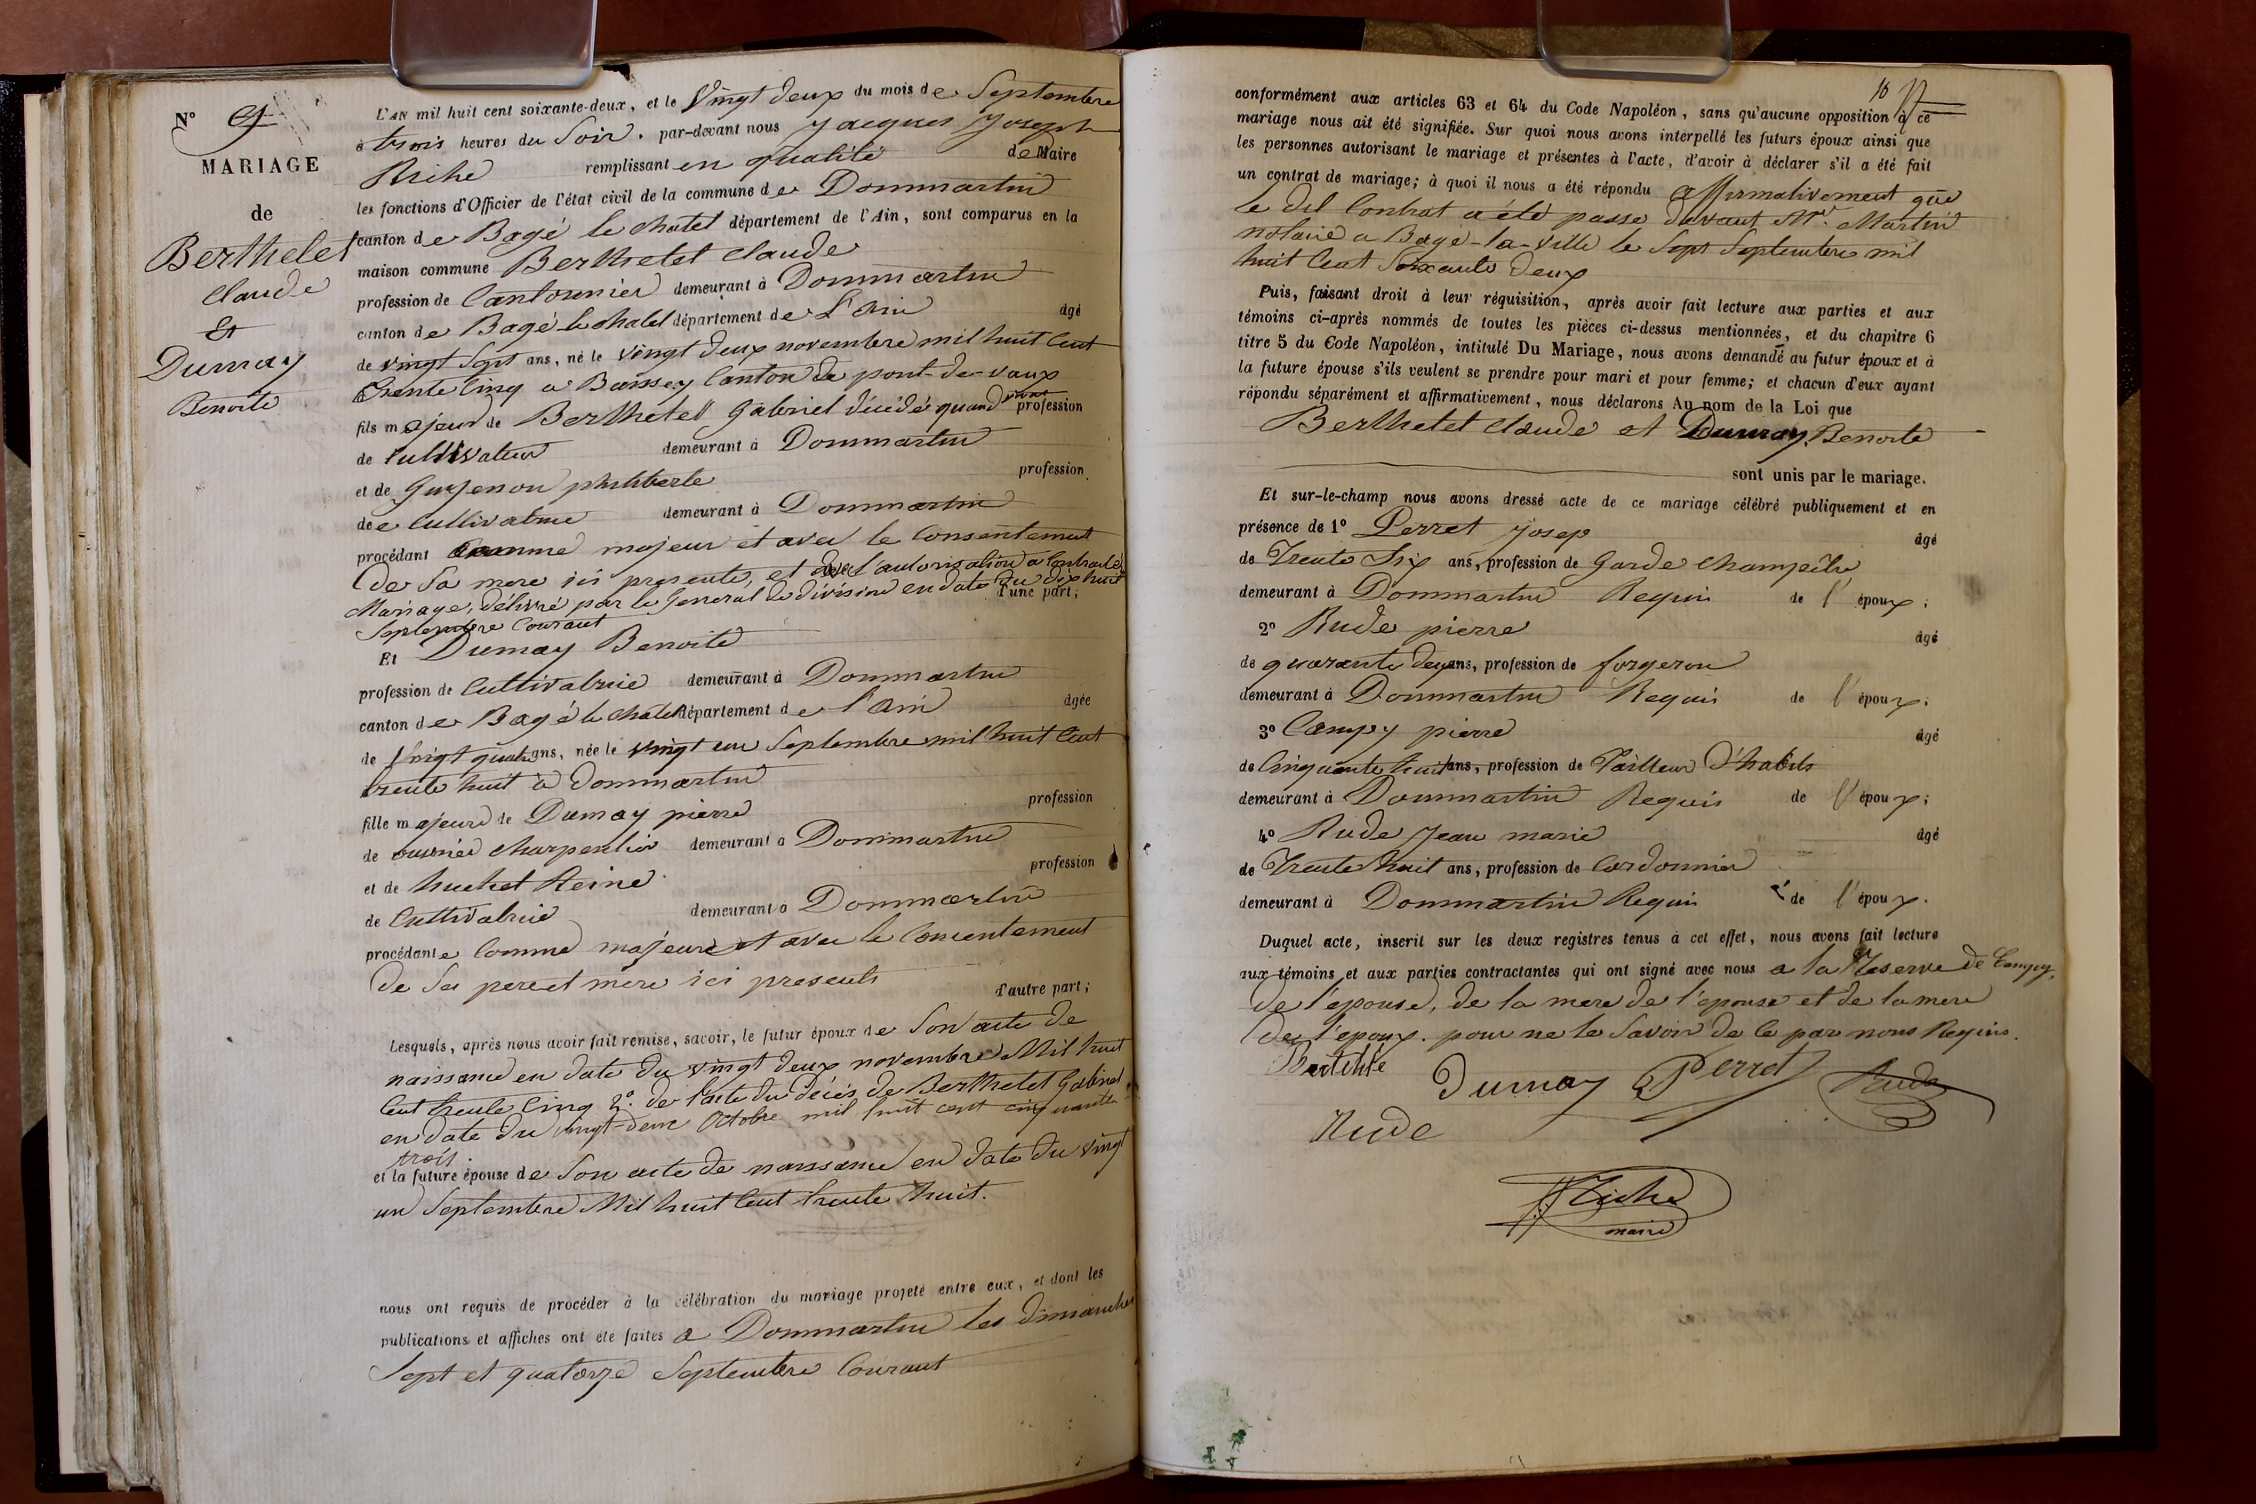 N° 9
MARIAGE
de
Berthelet
Claude
Et
Dumay
Benoite
L'AN mil huit cent soixante-deux, et le Vingt deux du mois de Septembre
à trois heures du Soir. par-devant nous Jacques Joseph
Riche remplissant en qualité de Maire
les fonctions d'Officier de l'état civil de la commune de Dommartin
canton de Bagé le chatel département de l'Ain, sont comparus en la
maison commune Berthelet Claude
profession de Cantonnier demeurant à Dommartin
canton de Bagé le chatel département de L'Ain âgé
de vingt Sept ans, né le vingt deux novembre mil huit Cent
trente Cinq a Boissey Canton de pont-de-vaux
fils majeur de Berthelet Gabriel décédé quand vivant profession
de Cultivateur demeurant à Dommartin
et de Guyenon philiberte profession
de Cultivatrice demeurant à Dommartin
procédant comme majeur et avec le Consentement
de Sa mere ici presente, et avec l'autorisation a Contracter
Mariage, délivré par le General de division en date du dix huit
Septembre Courant d'une part;
Et Dumay Benoite
profession de Cultivatrice demeurant à Dommartin
canton de Bagé le chatel département de l'Ain âgée
de Vingt quatre ans, née le vingt un Septembre mil huit Cent
trente huit à Dommartin
fille majeure de Dumay pierre profession
de ouvrier charpentier demeurant à Dommartin
et de huchet Reine profession
de Cultivatrice demeurant à Dommartin
procédante Comme majeure et avec le Consentement
de Ses pere et mère ici presents
d'autre part;
Lesquels, après nous avoir fait remise, savoir, le futur époux de Son acte de
naissance en date du vingt deux novembre Mil huit
Cent trente Cinq 2°. de l'acte du décès de Berthelet Gabriel
en date du vingt-deux Octobre mil huit cent cinquante
trois.
et la future épouse de Son acte de naissance en date du vingt
un Septembre Mil huit Cent trente huit.
nous ont requis de procéder à la célébration du mariage projeté entre eux, et dont les
publications et affiches ont été faites a Dommartin les dimanches
Sept et quatorze Septembre Courant
10
conformément aux articles 63 et 64 du Code Napoléon, sans qu'aucune opposition à ce
mariage nous ait été signifiée. Sur quoi nous avons interpellé les futurs époux ainsi que
les personnes autorisant le mariage et présentes à l'acte, d'avoir à déclarer s'il a été fait
un contrat de mariage; à quoi il nous a été répondu affirmativement que
le dit Contrat a été passé devant Me. Martin
notaire a Bagé-la-ville le Sept Septembre mil
huit Cent Soixante deux
Puis, faisant droit à leur réquisition, après avoir fait lecture aux parties et aux
témoins ci-après nommés de toutes les pièces ci-dessus mentionnées, et du chapitre 6
titre 5 du Code Napoléon, intitulé Du Mariage, nous avons demandé au futur époux et à
la future épouse s'ils veulent se prendre pour mari et pour femme; et chacun d'eux ayant
répondu séparément et affirmativement, nous déclarons Au nom de la Loi que
Berthelet Claude et Dumay Benoite
sont unis par le mariage.
Et sur-le-champ nous avons dressé acte de ce mariage célébré publiquement et en
présence de 1° Perret Josep âgé
de Trente Six ans, profession de Garde champêtre
demeurant à Dommartin Requis de l'époux;
2° Rude pierre âgé
de quarante deux ans, profession de forgeron
demeurant à Dommartin Requis de l'époux;
3° Campy pierre âgé
de Cinquante huit ans, profession de Tailleur d'habits
demeurant à Dommartin Requis de l'époux;
4° Rude Jean marie âgé
de Trente huit ans, profession de Cordonnier
demeurant à Dommartin Requis de l'époux.
Duquel acte, inscrit sur les deux registres tenus à cet effet, nous avons fait lecture
aux témoins et aux parties contractantes qui ont signé avec nous a la Reserve de Campy,
de l'epouse, de la mere de l'epouse et de la mere
de l'epoux. pour ne le Savoir de ce par nous Requis.
Dumay Perret Rude
Rude
Riche
maire